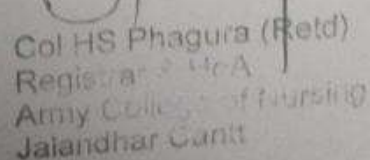 Col HS Phagura (Retd)
Registrar
Army College of Nursing
Jalandhar Cantt